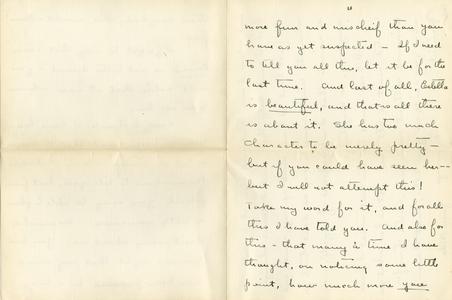 more fun and mischeif than you
have as yet suspected - If I need
to tell you all this, let it be for the
last time. And last of all, Estelle
is beautiful, and that is all there
is about it. She has too much
character to be merely pretty -
but if you could have seen her --
but I will not attempt this!
Take my word for it, and for all
this I have told you. And also for
this - that many a time I have
thought, on noticing some little
point, how much more you